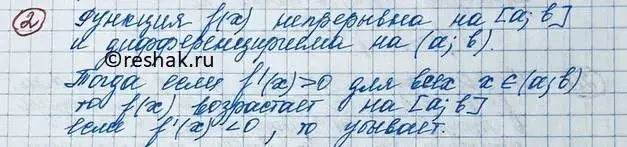 ② Функция f(x) непрерывна на [a; в]
и дифференцируема на (a; в).
©reshak.ru
Тогда если f'(x)>0 для всех x∈(a;в)
то f(x) возрастает на [a; в]
если f'(x)<0, то убывает.